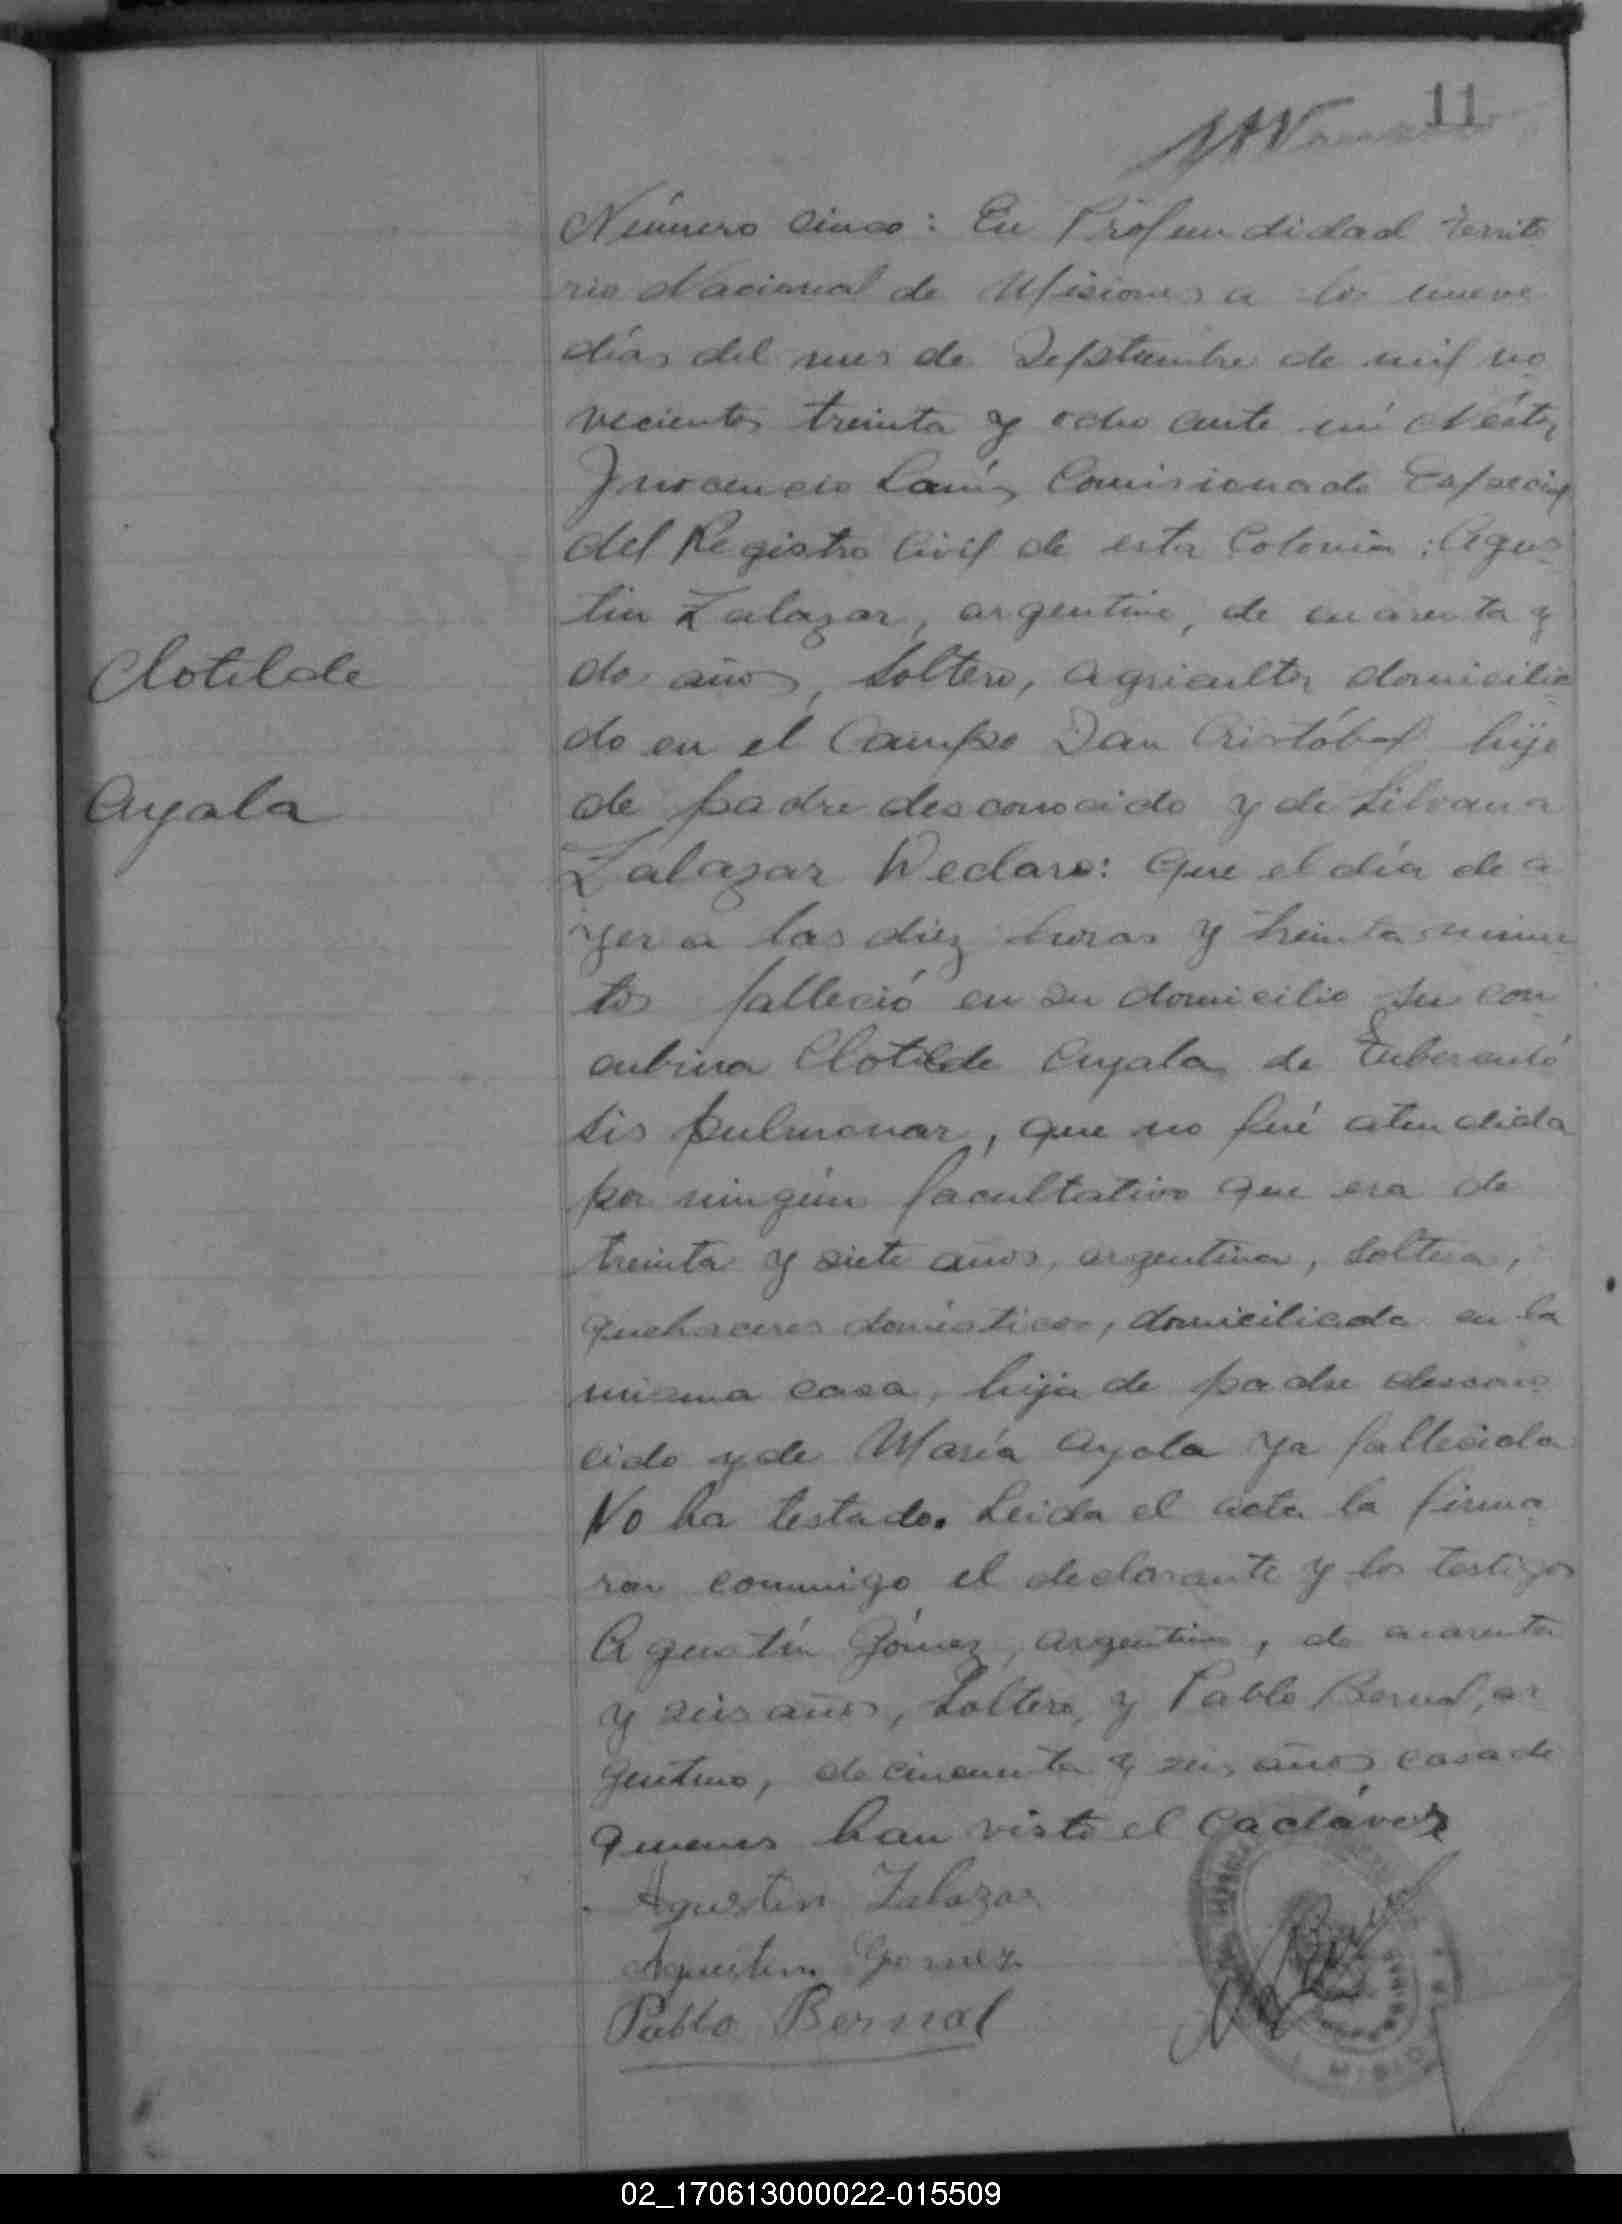 11
Número cinco: En Profundidad territo
rio Nacional de Misiones a los nueve
días del mes de Septiembre de mil no
vecientos treinta y ocho ante mí Néstor
Inocencio Lanús Comisionado Especial
del Registro Civil de esta Colonia: Agus
tin Zalazar, argentino, de cuarenta y
dos años, soltero, agricultor domicilia
do en el Campo San Cristóbal hijo
de padre desconocido y de Silvana
Zalazar Declaro: Que el día de a
yer a las diez horas y treinta minu
tos falleció en su domicilio su con
cubina Clotilde Ayala de Tuberculó
sis pulmonar, que no fué atendida
por ningún facultativo que era de
treinta y siete años, argentina, soltera,
quehaceres domésticos, domiciliada en la
misma casa, hija de padre descono
cido y de María Ayala ya fallecida
No ha testado. Leida el acta la firma
ron conmigo el declarante y los testigos
Agustín Gómez, argentino, de cuarenta
y seis años, soltero, y Pablo Bernal, ar
gentino, de cincuenta y seis años casado
quienes han visto el cadáver
Clotilde
Ayala
Agustin Zalazar
Agustin Gomez
Pablo Bernal
02_170613000022-015509